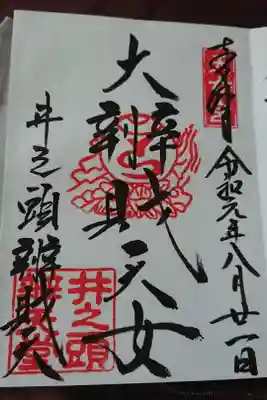 奉拝
令和元年八月廿一日
大辨財天女
井之頭辨財天
井之頭
辨財天